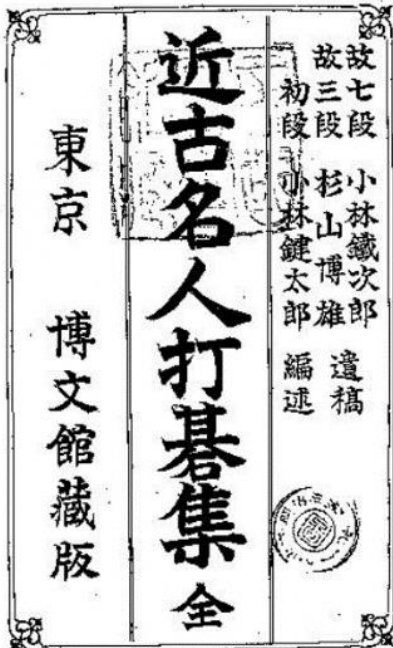 故七段 小林鐵次郎 遺稿
故三段 杉山博雄
初段 小林鍵太郎 編述
近古名人打碁集 全
東京 博文館藏版